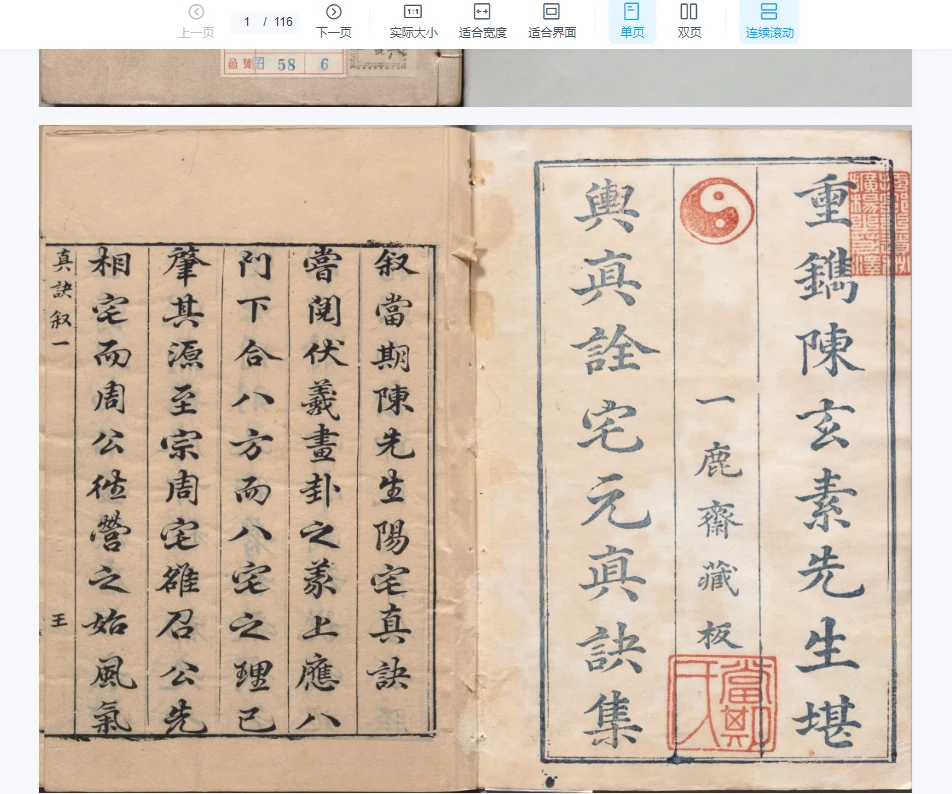 上一页
1 / 116
下一页
1:1
实际大小
适合宽度
适合界面
单页
双页
连续滚动
58 6
重鐫陳玄素先生堪
一鹿齋藏板
輿真詮宅元真訣集
當期
叙當期陳先生陽宅真訣
嘗閱伏羲畫卦之義上應八
門下合八方而八宅之理已
肇其源至宗周宅雒召公先
相宅而周公徃營之始風氣
真訣叙一
王